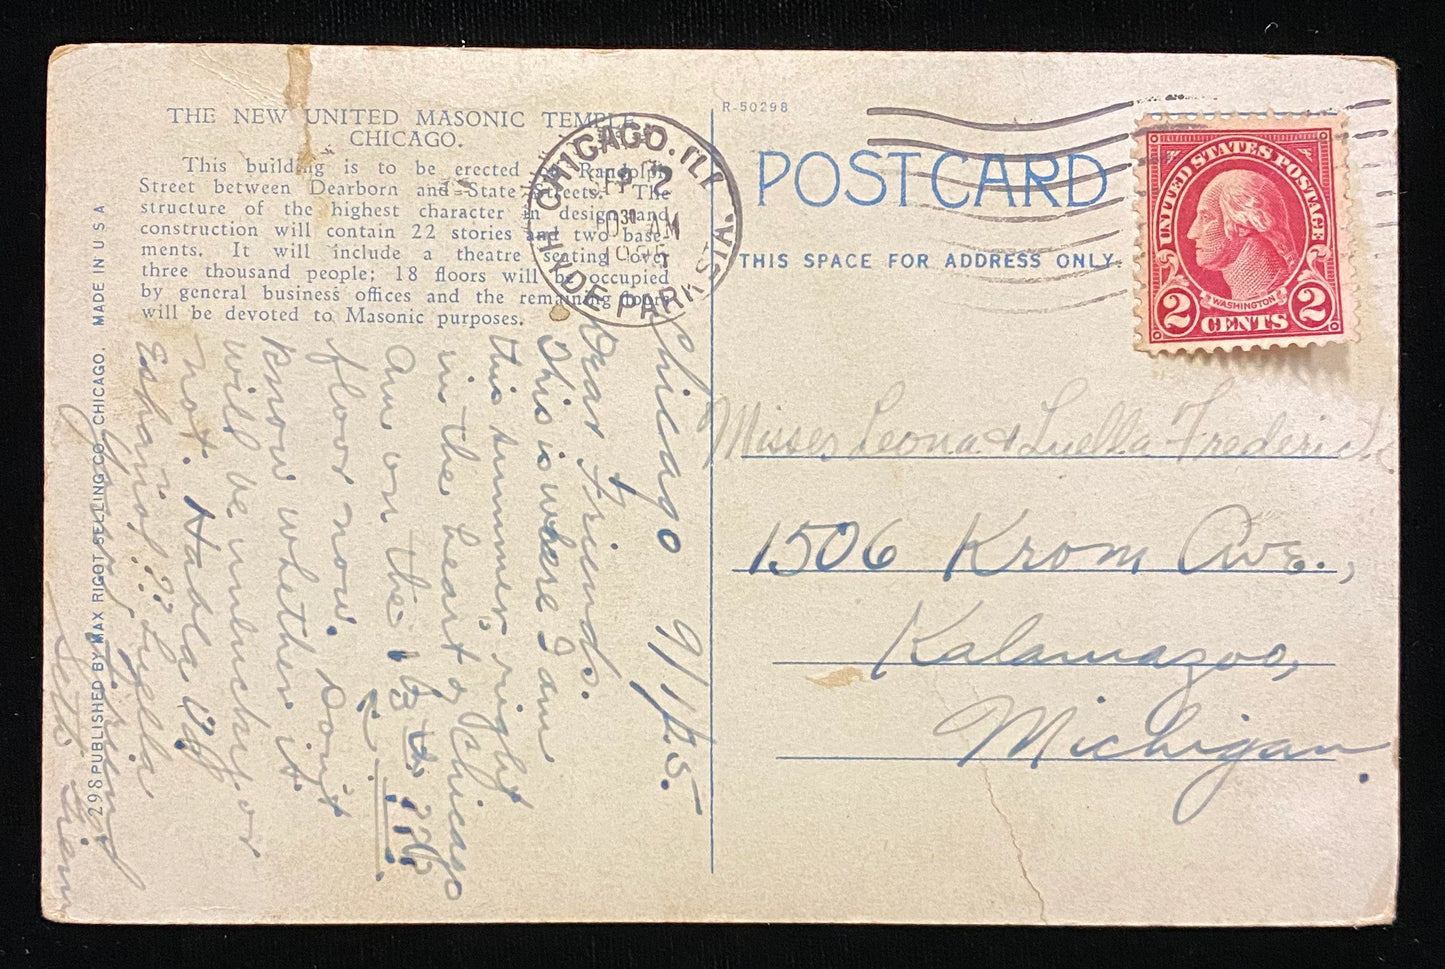 THE NEW UNITED MASONIC TEMPLE
CHICAGO.
This building is to be erected Randolph
Street between Dearborn and State Streets. The
structure of the highest character in design and
construction will contain 22 stories and two base-
ments. It will include a theatre seating over
three thousand people; 18 floors will be occupied
by general business offices and the remaining floors
will be devoted to Masonic purposes.
298 PUBLISHED BY MAX RIGOT SELLING CO., CHICAGO. MADE IN U S A
Chicago 9/1/25
Dear Friends.
This is where I am
this summer, right
in the heart of Chicago
Am on the
floor now. Don't
know whether it
will be unlucky or
not.
Luella
Your friend
CHICAGO. ILL.
2
10 30 AM
HYDE PARK STA.
R-50298
POSTCARD
THIS SPACE FOR ADDRESS ONLY.
UNITED STATES POSTAGE
WASHINGTON
2 CENTS 2
Misses Leona & Luella Frederick
1506 Krom Ave.,
Kalamazoo,
Michigan.